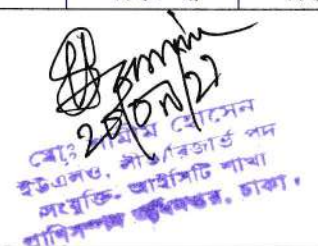 20/07/21
মো: শামীম হোসেন
ইউএলও, লীভ/রিজার্ভ পদ
সংযুক্তি- আইসিটি শাখা
প্রাণিসম্পদ অধিদপ্তর, ঢাকা।